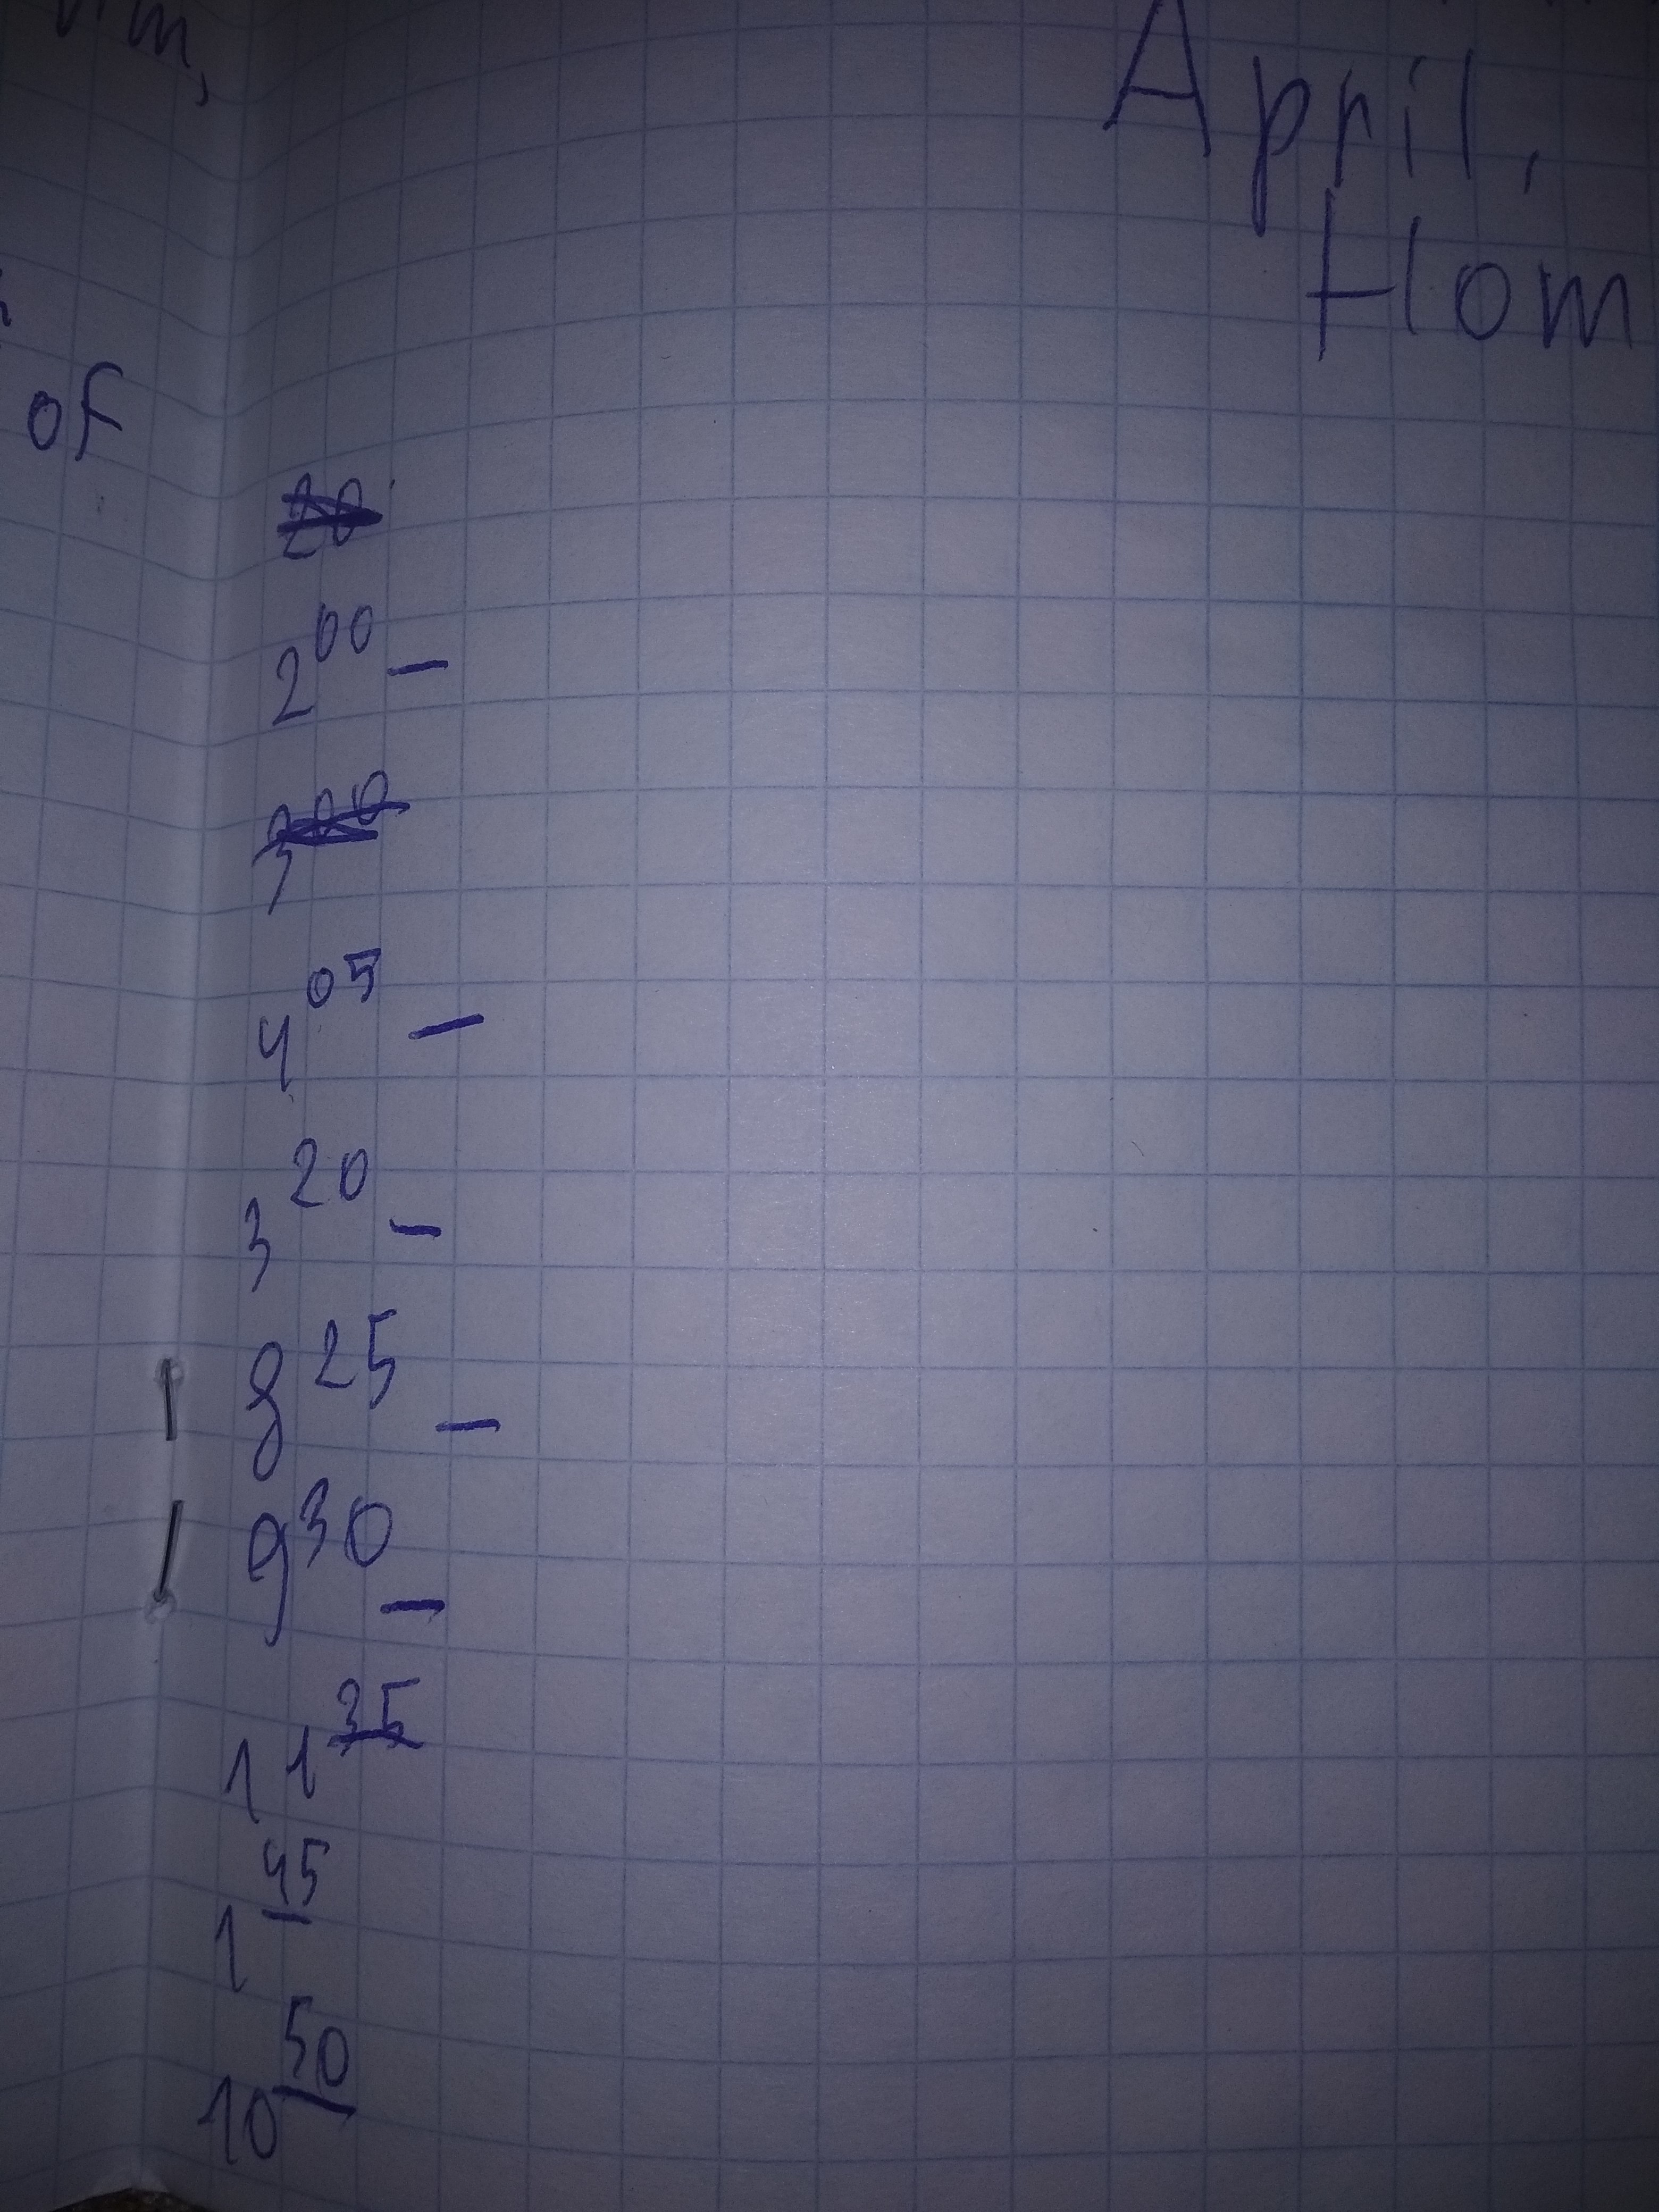 April,
Hom
of
2⁰⁰ –
4⁰⁵ –
3²⁰ –
8²⁵ –
9³⁰ –
11³⁵
1⁴⁵
10⁵⁰